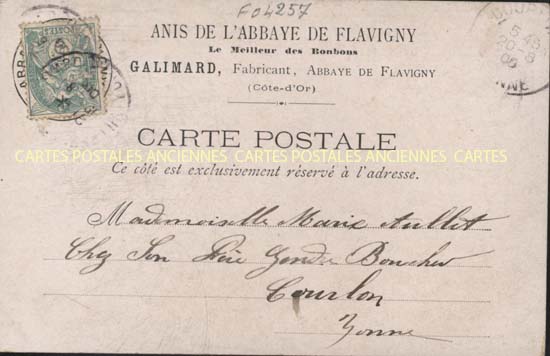 F04257
ANIS DE L'ABBAYE DE FLAVIGNY
Le Meilleur des Bonbons
GALIMARD, Fabricant, ABBAYE DE FLAVIGNY
(Côte-d'Or)
CARTE POSTALE
CARTES POSTALES ANCIENNES CARTES POSTALES ANCIENNES CARTES
Ce côté est exclusivement réservé à l'adresse.
Mademoiselle Marie Aullet
Chez Son Père Gendre Boucher
Courlon
Yonne